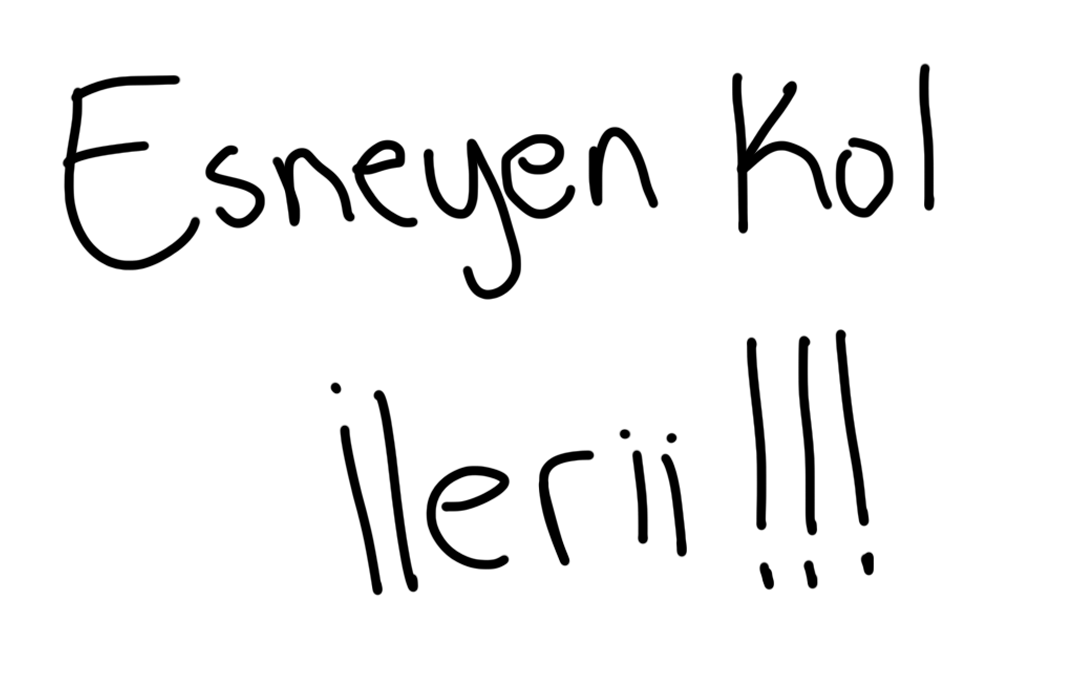 Esneyen Kol
ilerii!!!